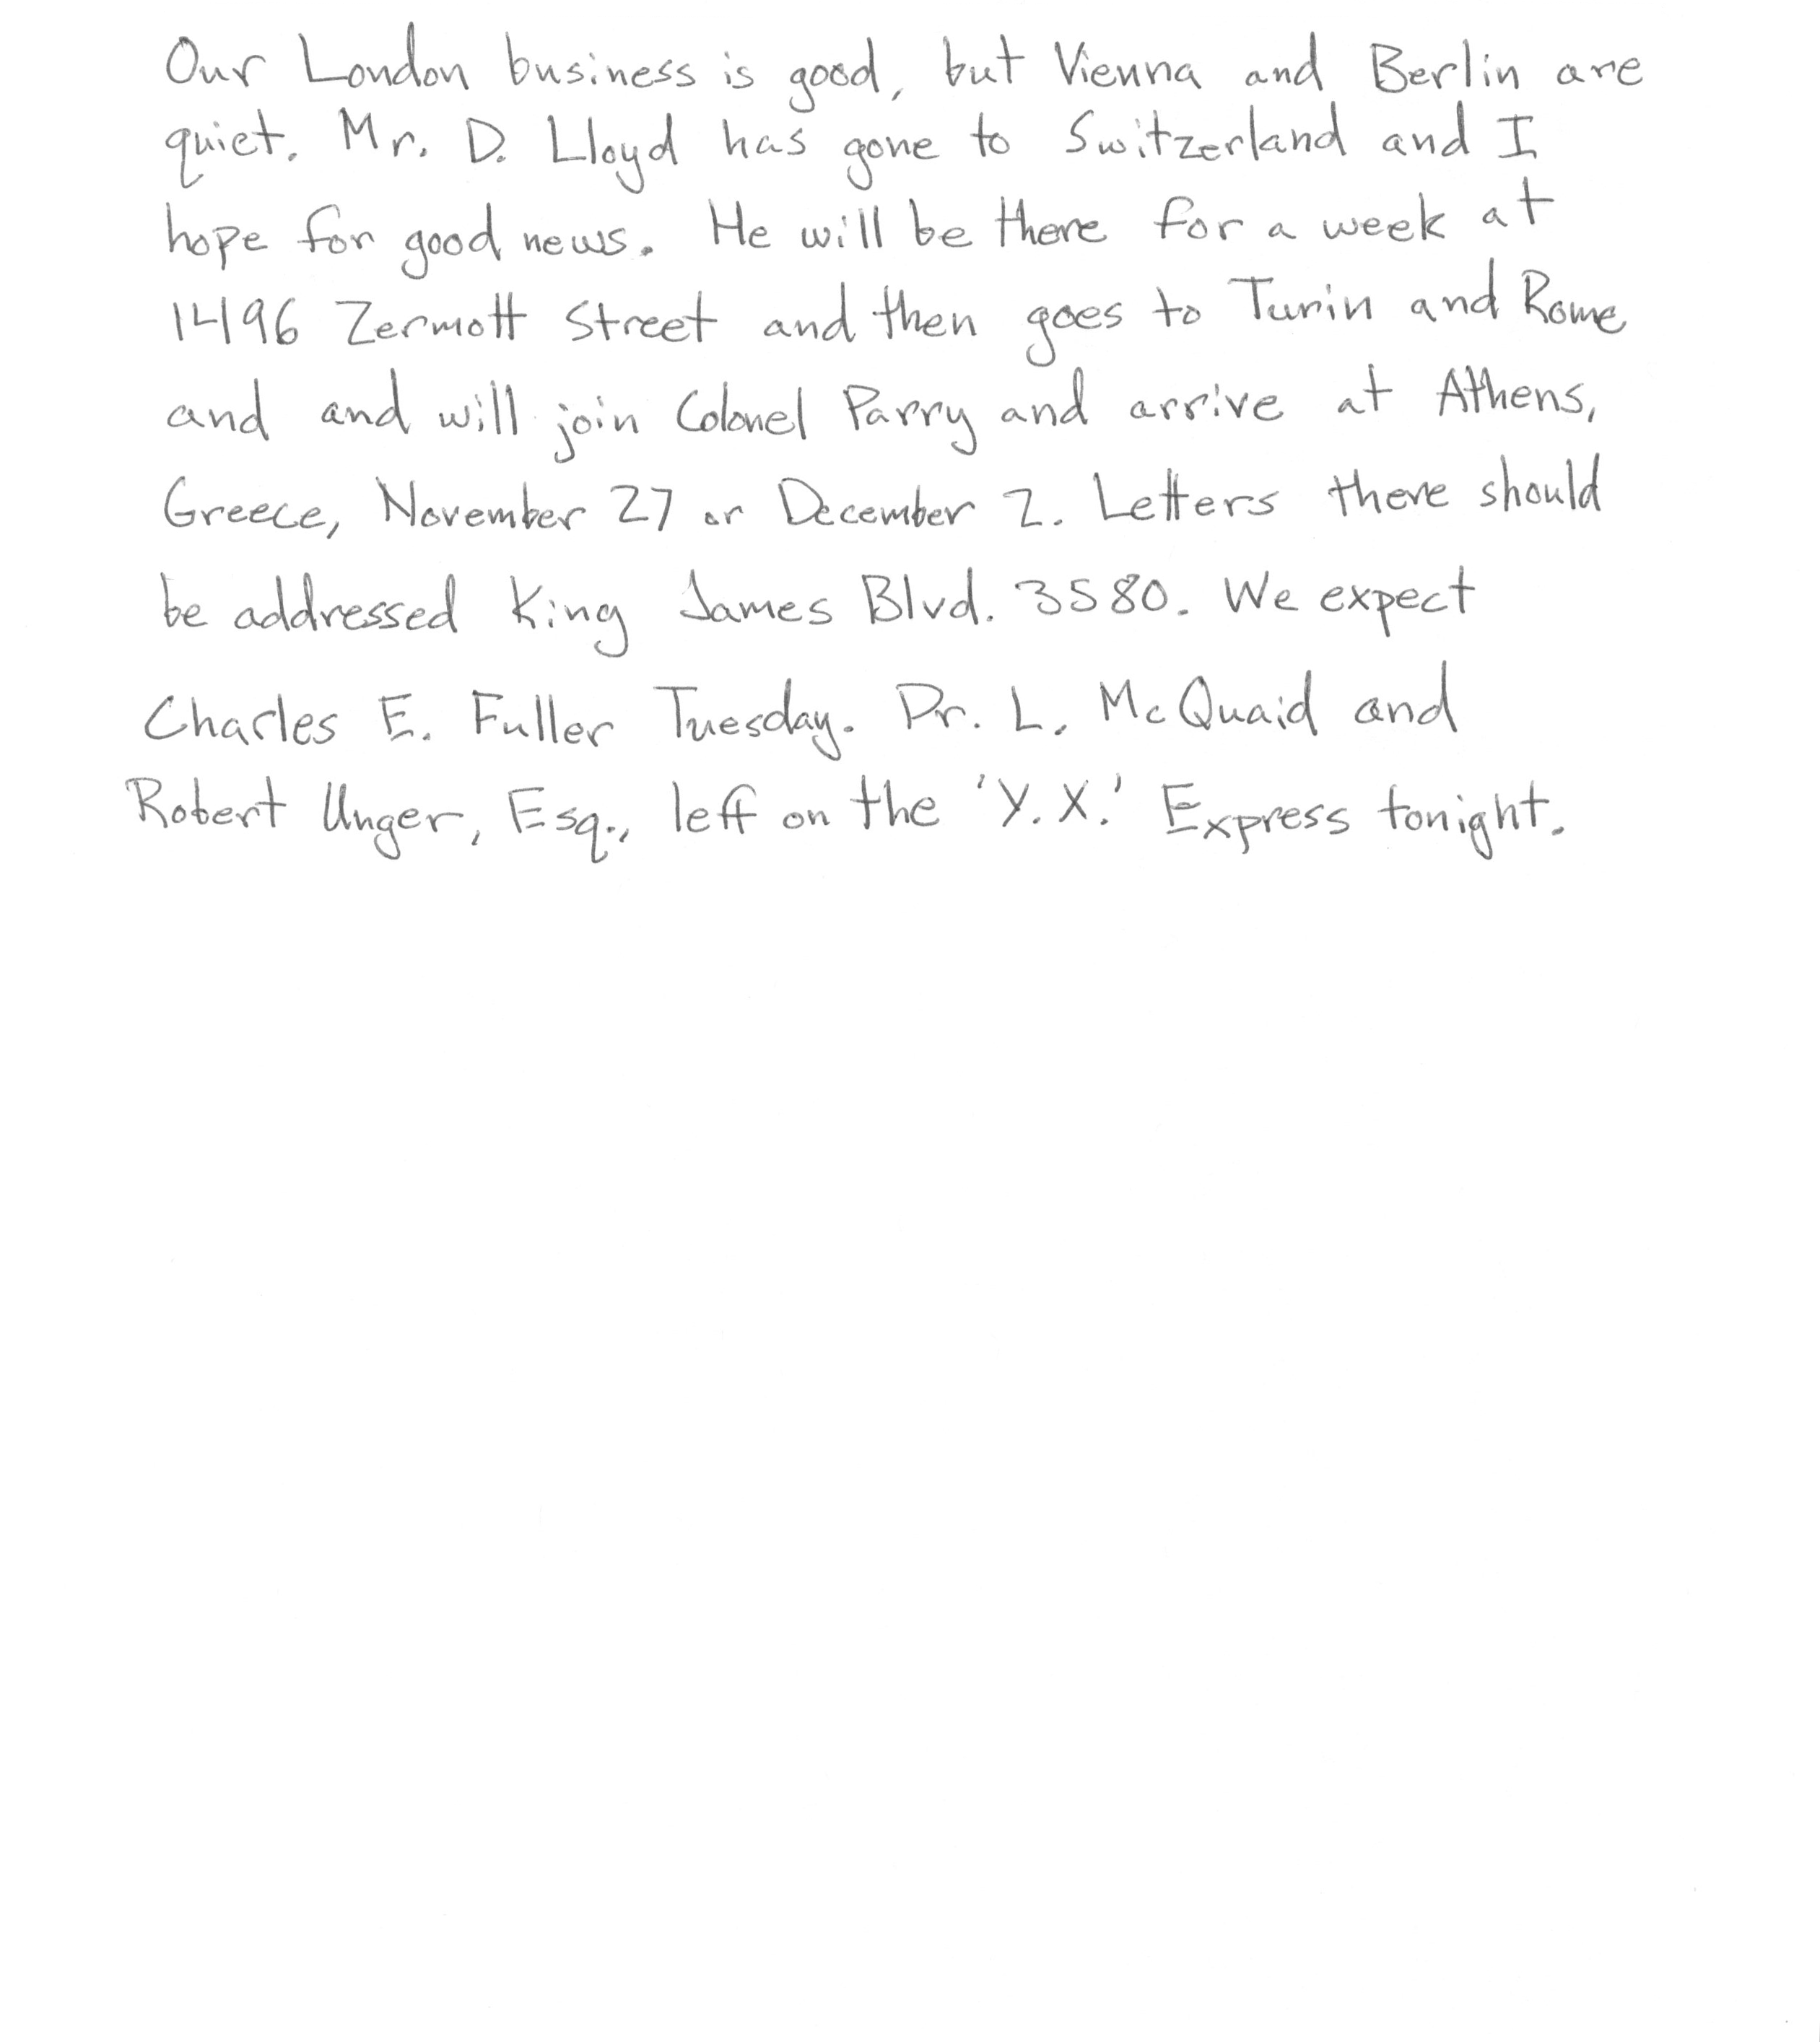 Our London business is good, but Vienna and Berlin are
quiet. Mr. D. Lloyd has gone to Switzerland and I
hope for good news. He will be there for a week at
1496 Zermott Street and then goes to Turin and Rome
and and will join Colonel Parry and arrive at Athens,
Greece, November 27 or December 2. Letters there should
be addressed King James Blvd. 3580. We expect
Charles E. Fuller Tuesday. Dr. L. McQuaid and
Robert Unger, Esq., left on the 'Y.X.' Express tonight.